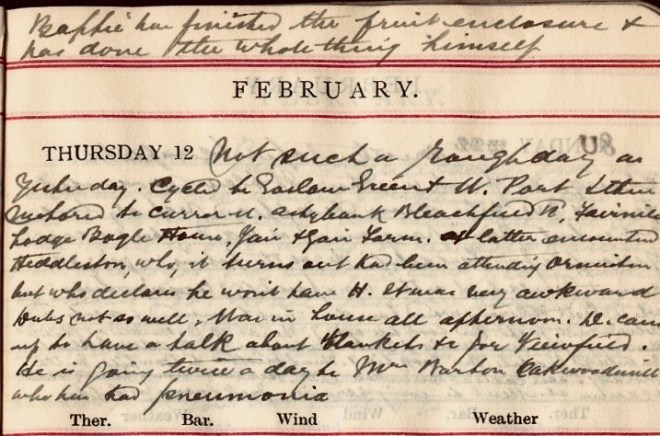 has finished the fruit enclosure &
has done the whole thing himself
FEBRUARY.
THURSDAY 12 Not such a rough day as
Yesterday. Cycled to Green & U. Port then
motored to Ashybank Bleachfield Rd,
Lodge Bogle House, Yair & Yair Farm. At latter encountered
Hiddleston, who, it turns out had been attending Ormiston
but who declares he won't have H. It was very awkward
not so well, Was in house all afternoon. D. came
up to have a talk about blankets &c for Viewfield.
He is going twice a day to Mrs Barbon Oakwoodmill
who has had pneumonia
Ther. Bar. Wind Weather